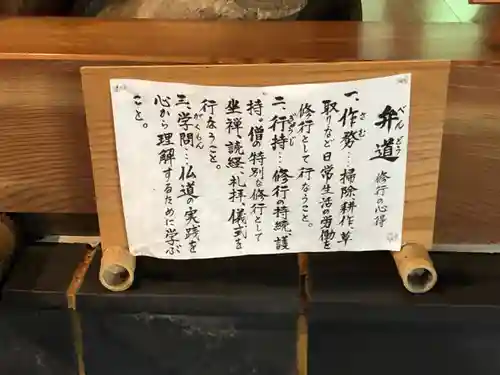 弁道 修行の心得
べんどう
一、作務…掃除耕作、草
さむ
取りなど日常生活の労働を
修行として行なうこと。
二、行持…修行の持続、護
ぎょうじ
持。僧の特別な修行として
坐禅、読経、礼拝、儀式を
行なうこと。
三、学問…仏道の実践を
がくもん
心から理解するために学ぶ
こと。